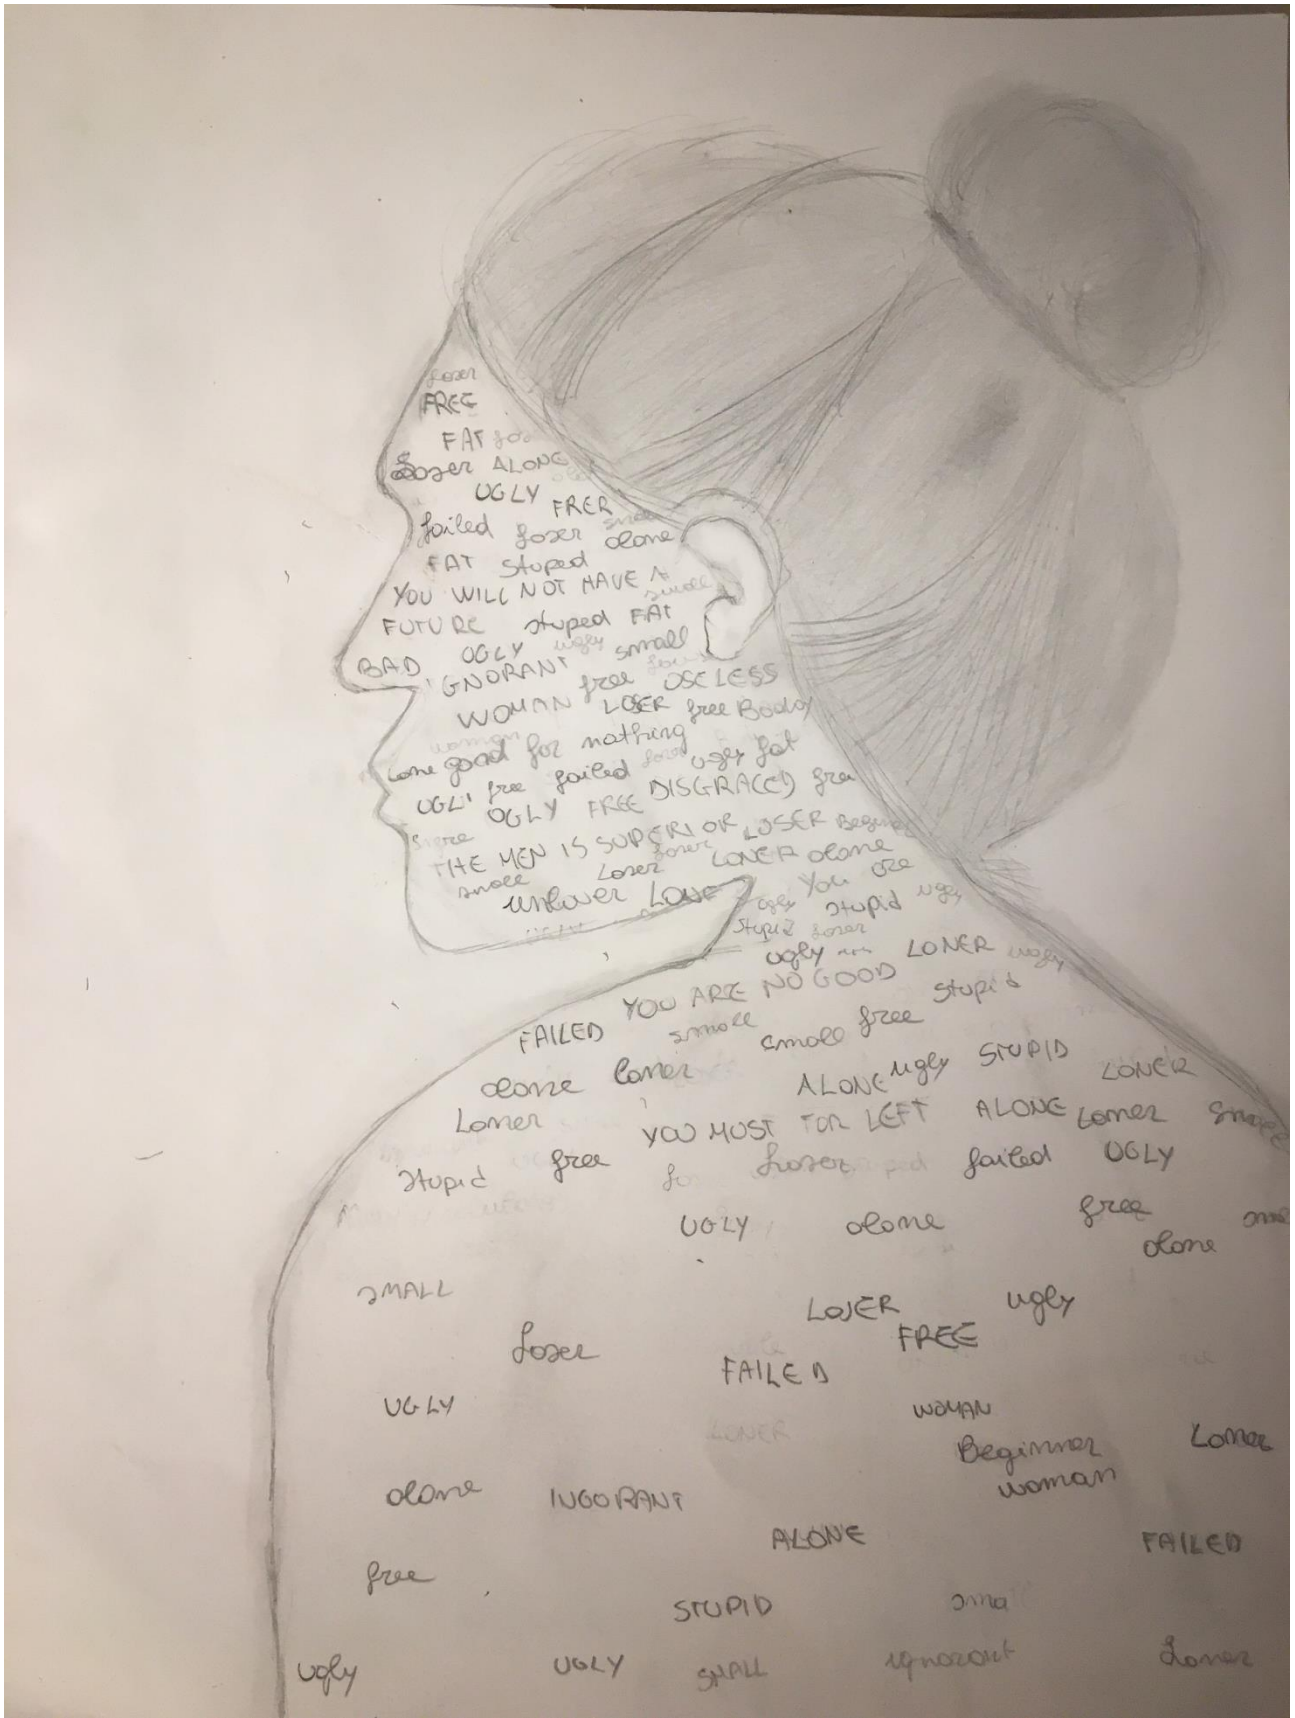 loser
FREE
FAT
Loser ALONE
UGLY FRER
failed loser alone
FAT stuped
YOU WILL NOT HAVE A
small
FUTURE stuped FAT
BAD UGLY ugly small
IGNORANT free USELESS
WOMAN LOSER free Body
woman
good for nathing
UGLY free failed ugly fat
UGLY FREE DISGRACED free
THE MEN IS SUPERIOR LOSER
small Loser loser LONER alone
unlover LOVE ugly You are
stupid ugly
stupid loser
ugly LONER ugly
YOU ARE NO GOOD
FAILED small small free stupid
alone loner ALONE ugly STUPID LONER
Loner YOU MUST LEFT ALONE Loner
stupid free loser failed UGLY
UGLY alone free
alone
SMALL
LOSER ugly
loser FREE
FAILED
UGLY WOMAN
LONER Beginner Loner
alone INGORANT woman
ALONE FAILED
free
STUPID
ugly UGLY SMALL ignorant Loner